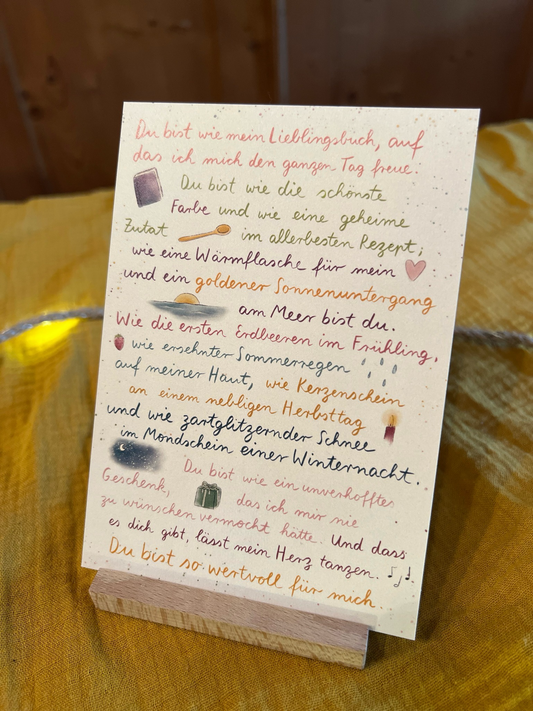 Du bist wie mein Lieblingsbuch, auf
das ich mich den ganzen Tag freue.
Du bist wie die schönste
Farbe und wie eine geheime
Zutat im allerbesten Rezept,
wie eine Wärmflasche für mein
und ein goldener Sonnenuntergang
am Meer bist du.
Wie die ersten Erdbeeren im Frühling,
wie ersehnter Sommerregen
auf meiner Haut, wie Kerzenschein
an einem nebligen Herbsttag
und wie zartglitzernder Schnee
im Mondschein einer Winternacht.
Du bist wie ein unverhofftes
Geschenk, das ich mir nie
zu wünschen vermocht hätte. Und dass
es dich gibt, lässt mein Herz tanzen.
Du bist so wertvoll für mich.